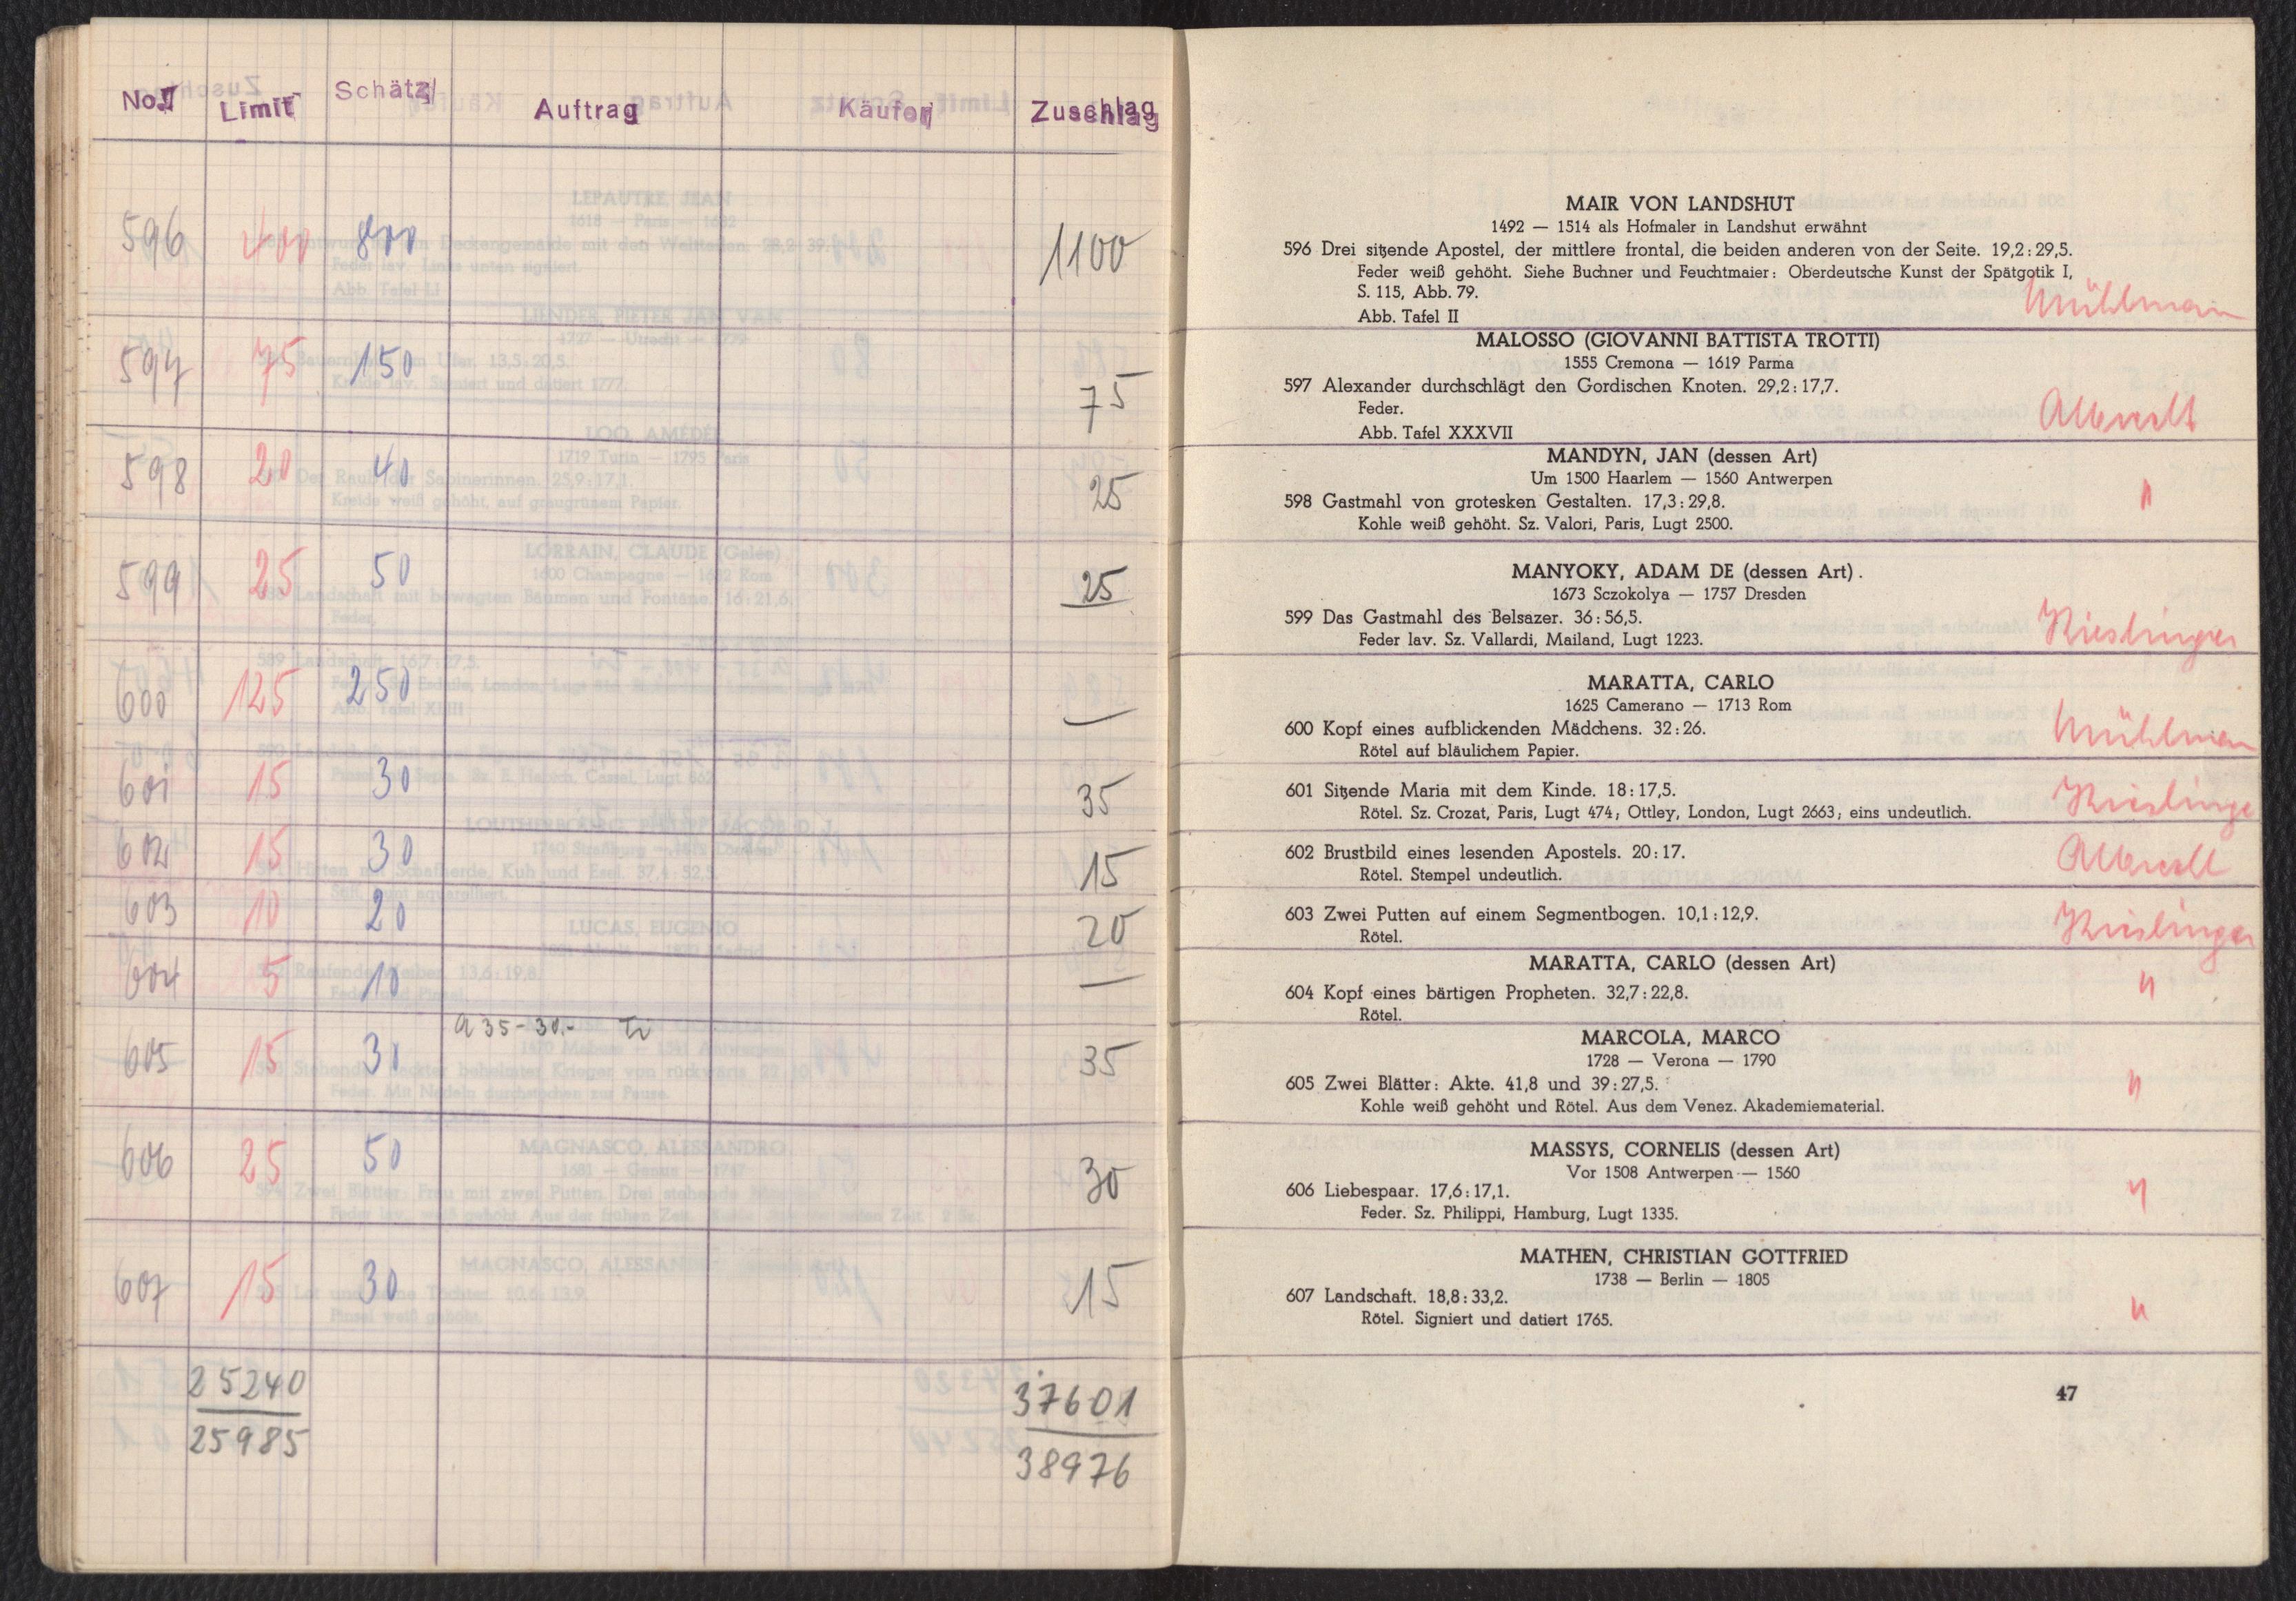 No Limit Schätz Auftrag Käufer Zuschlag
596 400 800 1100
597 75 150 75
598 20 40 25
599 25 50 25
600 125 250 —
601 15 30 35
602 15 30 15
603 10 20 20
604 5 10 —
605 15 30 a 35 - 30.- 35
606 25 50 30
607 15 30 15
25240 37601
25985 38976
MAIR VON LANDSHUT
1492 — 1514 als Hofmaler in Landshut erwähnt
596 Drei sitzende Apostel, der mittlere frontal, die beiden anderen von der Seite. 19,2 : 29,5.
Feder weiß gehöht. Siehe Buchner und Feuchtmaier: Oberdeutsche Kunst der Spätgotik I,
S. 115, Abb. 79.
Mühlman
Abb. Tafel II
MALOSSO (GIOVANNI BATTISTA TROTTI)
1555 Cremona — 1619 Parma
597 Alexander durchschlägt den Gordischen Knoten. 29,2 : 17,7.
Feder.
Abb. Tafel XXXVII
MANDYN, JAN (dessen Art)
Um 1500 Haarlem — 1560 Antwerpen
598 Gastmahl von grotesken Gestalten. 17,3 : 29,8.
Kohle weiß gehöht. Sz. Valori, Paris, Lugt 2500.
MANYOKY, ADAM DE (dessen Art).
1673 Sczokolya — 1757 Dresden
599 Das Gastmahl des Belsazer. 36 : 56,5.
Feder lav. Sz. Vallardi, Mailand, Lugt 1223.
MARATTA, CARLO
1625 Camerano — 1713 Rom
600 Kopf eines aufblickenden Mädchens. 32 : 26. Mühlman
Rötel auf bläulichem Papier.
601 Sitzende Maria mit dem Kinde. 18 : 17,5.
Rötel. Sz. Crozat, Paris, Lugt 474; Ottley, London, Lugt 2663; eins undeutlich.
602 Brustbild eines lesenden Apostels. 20 : 17.
Rötel. Stempel undeutlich.
603 Zwei Putten auf einem Segmentbogen. 10,1 : 12,9.
Rötel.
MARATTA, CARLO (dessen Art)
604 Kopf eines bärtigen Propheten. 32,7 : 22,8. "
Rötel.
MARCOLA, MARCO
1728 — Verona — 1790
605 Zwei Blätter: Akte. 41,8 und 39 : 27,5. "
Kohle weiß gehöht und Rötel. Aus dem Venez. Akademiematerial.
MASSYS, CORNELIS (dessen Art)
Vor 1508 Antwerpen — 1560
606 Liebespaar. 17,6 : 17,1. "
Feder. Sz. Philippi, Hamburg, Lugt 1335.
MATHEN, CHRISTIAN GOTTFRIED
1738 — Berlin — 1805
607 Landschaft. 18,8 : 33,2. "
Rötel. Signiert und datiert 1765.
47